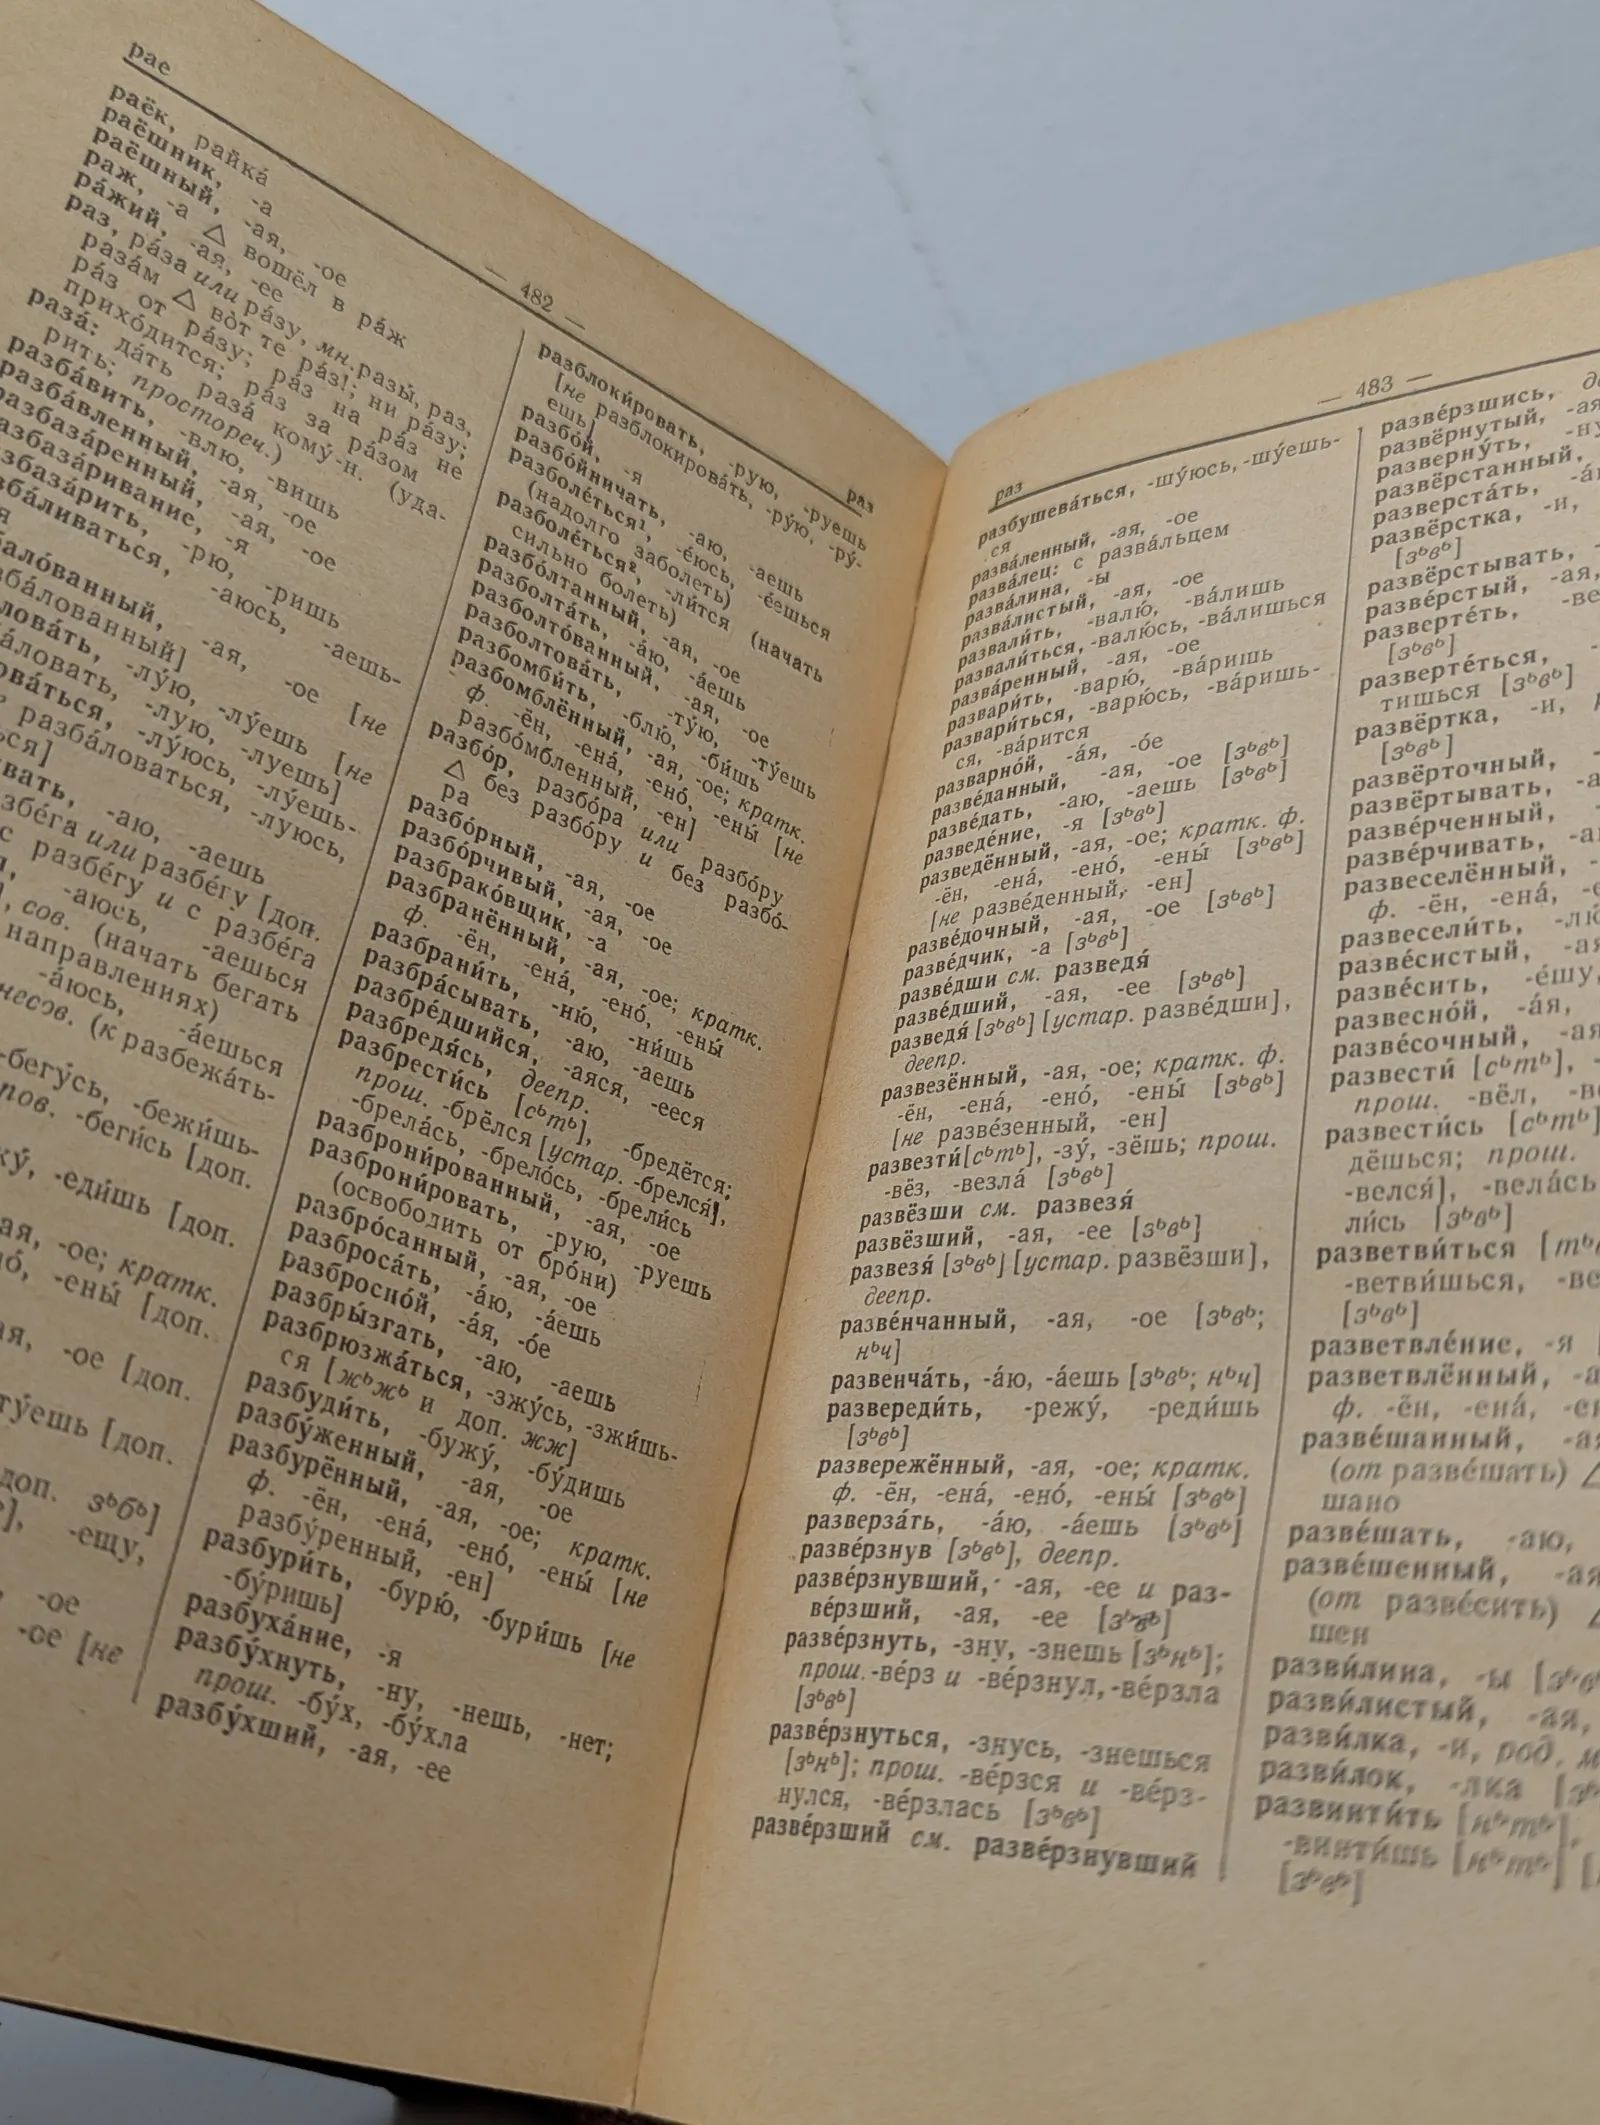 рае
— 482 —
раз
раёк, райка́
раёшник, -а
раёшный, -ая, -ое
раж, -а △ вошёл в ра́ж
ра́жий, -ая, -ее
раз, ра́за или ра́зу, мн. разы́, раз,
раза́м △ во̀т те ра́з!; ни ра́зу;
ра́з от ра́зу; ра́з на ра́з не
прихо́дится; ра́з за ра́зом
раза́: да́ть раза́ кому́-н. (уда-
рить; простореч.)
разба́вить, -влю, -вишь
разба́вленный, -ая, -ое
разбаза́ренный, -ая, -ое
разбаза́ривание, -я
-рю, -ришь
-аюсь, -аешь-
-ая, -ое [не
-лу́ю, -лу́ешь [не
-лую, -луешь]
-лу́юсь, -лу́ешь-
разба́ловаться, -луюсь,
-аю, -аешь
или разбе́гу [доп.
с разбе́гу и с разбе́га
-аюсь, -аешься
сов. (начать бегать
направлениях)
-а́юсь, -а́ешься
несов. (к разбежа́ть-
-бегу́сь, -бежи́шь-
пов. -беги́сь [доп.
-еди́шь [доп.
-ая, -ое; кратк.
-ены́ [доп.
-ое [доп.
[доп.
доп. зᵇбᵇ]
-ещу,
-ое
-ое [не
разблоки́ровать, -рую, -руешь
[не разблокирова́ть, -ру́ю, -ру́-
ешь]
разбо́й, -я
разбо́йничать, -аю, -аешь
разболе́ться¹, -е́юсь, -е́ешься
(надолго заболеть)
разболе́ться², -ли́тся (начать
сильно болеть)
разбо́лтанный, -ая, -ое
разболта́ть, -а́ю, -а́ешь
разболто́ванный, -ая, -ое
разболтова́ть, -ту́ю, -ту́ешь
разбомби́ть, -блю́, -би́шь
разбомблённый, -ая, -ое; кратк.
ф. -ён, -ена́, -ено́, -ены́ [не
разбо́мбленный, -ен]
разбо́р, разбо́ра или разбо́ру
△ без разбо́ру и без разбо́-
ра
разбо́рный, -ая, -ое
разбо́рчивый, -ая, -ое
разбрако́вщик, -а
разбранённый, -ая, -ое; кратк.
ф. -ён, -ена́, -ено́, -ены́
разбрани́ть, -ню́, -ни́шь
разбра́сывать, -аю, -аешь
разбре́дшийся, -аяся, -ееся
разбредя́сь, деепр.
разбрести́сь [сᵇтᵇ], -бредётся;
прош. -брёлся [устар. -брелся́],
-брела́сь, -брело́сь, -брели́сь
разброни́рованный, -ая, -ое
разброни́ровать, -рую, -руешь
(освободить от бро́ни)
разбро́санный, -ая, -ое
разброса́ть, -а́ю, -а́ешь
разбросно́й, -а́я, -о́е
разбры́згать, -аю, -аешь
разбрюзжа́ться, -зжу́сь, -зжи́шь-
ся [жᵇжᵇ и доп. жж]
разбуди́ть, -бужу́, -бу́дишь
разбу́женный, -ая, -ое
разбурённый, -ая, -ое; кратк.
ф. -ён, -ена́, -ено́, -ены́ [не
разбу́ренный, -ен]
разбури́ть, -бурю́, -бури́шь [не
-бу́ришь]
разбуха́ние, -я
разбу́хнуть, -ну, -нешь, -нет;
прош. -бу́х, -бу́хла
разбу́хший, -ая, -ее
раз
— 483 —
разбушева́ться, -шу́юсь, -шу́ешь-
ся
разва́ленный, -ая, -ое
разва́лец: с разва́льцем
разва́лина, -ы
разва́листый, -ая, -ое
развали́ть, -валю́, -ва́лишь
развали́ться, -валю́сь, -ва́лишься
разва́ренный, -ая, -ое
развари́ть, -варю́, -ва́ришь
развари́ться, -варю́сь, -ва́ришь-
ся, -ва́рится
разварно́й, -а́я, -о́е
разве́данный, -ая, -ое [зᵇвᵇ]
разве́дать, -аю, -аешь [зᵇвᵇ]
разведе́ние, -я [зᵇвᵇ]
разведённый, -ая, -ое; кратк. ф.
-ён, -ена́, -ено́, -ены́ [зᵇвᵇ]
[не разве́денный, -ен]
разве́дочный, -ая, -ое [зᵇвᵇ]
разве́дчик, -а [зᵇвᵇ]
разве́дши см. разведя́
разве́дший, -ая, -ее [зᵇвᵇ]
разведя́ [зᵇвᵇ] [устар. разве́дши],
деепр.
развезённый, -ая, -ое; кратк. ф.
-ён, -ена́, -ено́, -ены́ [зᵇвᵇ]
[не разве́зенный, -ен]
развезти́ [сᵇтᵇ], -зу́, -зёшь; прош.
-вёз, -везла́ [зᵇвᵇ]
развёзши см. развезя́
развёзший, -ая, -ее [зᵇвᵇ]
развезя́ [зᵇвᵇ] [устар. развёзши],
деепр.
разве́нчанный, -ая, -ое [зᵇвᵇ;
нᵇч]
развенча́ть, -а́ю, -а́ешь [зᵇвᵇ; нᵇч]
развереди́ть, -режу́, -реди́шь
[зᵇвᵇ]
развережённый, -ая, -ое; кратк.
ф. -ён, -ена́, -ено́, -ены́ [зᵇвᵇ]
разверза́ть, -а́ю, -а́ешь [зᵇвᵇ]
разве́рзнув [зᵇвᵇ], деепр.
разве́рзнувший, -ая, -ее и раз-
ве́рзший, -ая, -ее [зᵇвᵇ]
разве́рзнуть, -зну, -знешь [зᵇнᵇ];
прош. -ве́рз и -ве́рзнул, -ве́рзла
[зᵇвᵇ]
разве́рзнуться, -знусь, -знешься
[зᵇнᵇ]; прош. -ве́рзся и -ве́рз-
нулся, -ве́рзлась [зᵇвᵇ]
разве́рзший см. разве́рзнувший
разве́рзшись,
развёрнутый, -ая
разверну́ть,
развёрстанный,
разверста́ть,
развёрстка, -и,
[зᵇвᵇ]
развёрстывать,
разве́рстый, -ая,
разверте́ть,
[зᵇвᵇ]
разверте́ться,
тишься [зᵇвᵇ]
развёртка, -и,
[зᵇвᵇ]
развёрточный,
развёртывать,
разве́рченный,
разве́рчивать,
развеселённый,
ф. -ён, -ена́,
развесели́ть,
разве́систый,
разве́сить, -е́шу,
развесно́й, -а́я,
разве́сочный, -ая
развести́ [сᵇтᵇ],
прош. -вёл,
развести́сь [сᵇтᵇ]
дёшься; прош.
-велся́], -вела́сь
ли́сь [зᵇвᵇ]
разветви́ться
-ветви́шься,
[зᵇвᵇ]
разветвле́ние, -я
разветвлённый,
ф. -ён, -ена́,
разве́шанный,
(от разве́шать) △
шано
разве́шать, -аю,
разве́шенный,
(от разве́сить)
шен
разви́лина, -ы
разви́листый, -ая,
разви́лка, -и, род.
разви́лок, -лка
развинти́ть [нᵇтᵇ],
-винти́шь [нᵇтᵇ]
[зᵇвᵇ]